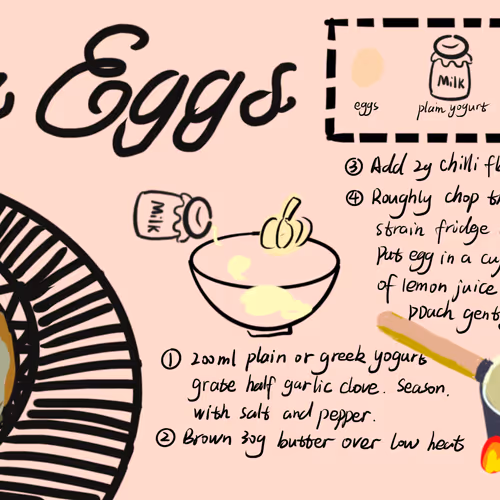 Eggs
Milk
eggs
plain yogurt
Milk
③ Add 2g chilli
④ Roughly chop
strain fridge
Put egg in a
of lemon juice
poach
① 200ml plain or greek yogurt
grate half garlic clove. Season.
with salt and pepper.
② Brown 30g butter over low heat